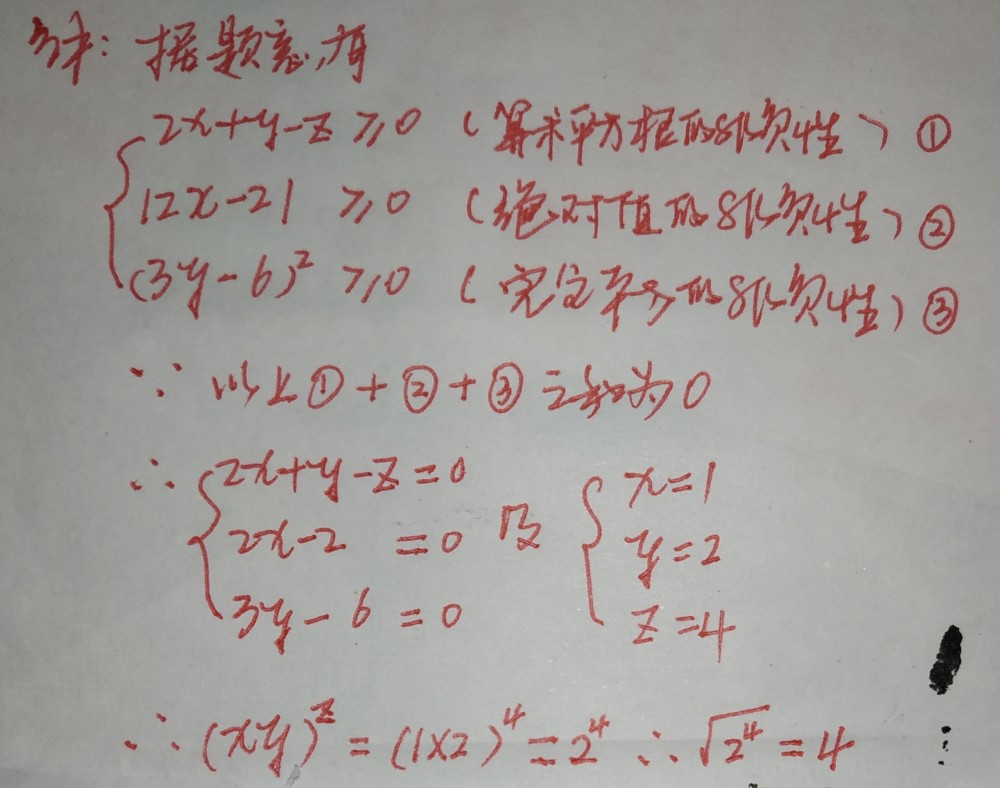 解：据题意，有
2x+y-z ≥0 （算术平方根的非负性）①
|2x-2| ≥0 （绝对值的非负性）②
(3y-6)² ≥0 （完全平方的非负性）③
∵ 以上①+②+③之和为0
∴ {2x+y-z=0 及 {x=1
2x-2 =0 y=2
3y-6=0 z=4
∴ (xy)^z = (1×2)^4 = 2^4 ∴ √2^4 = 4